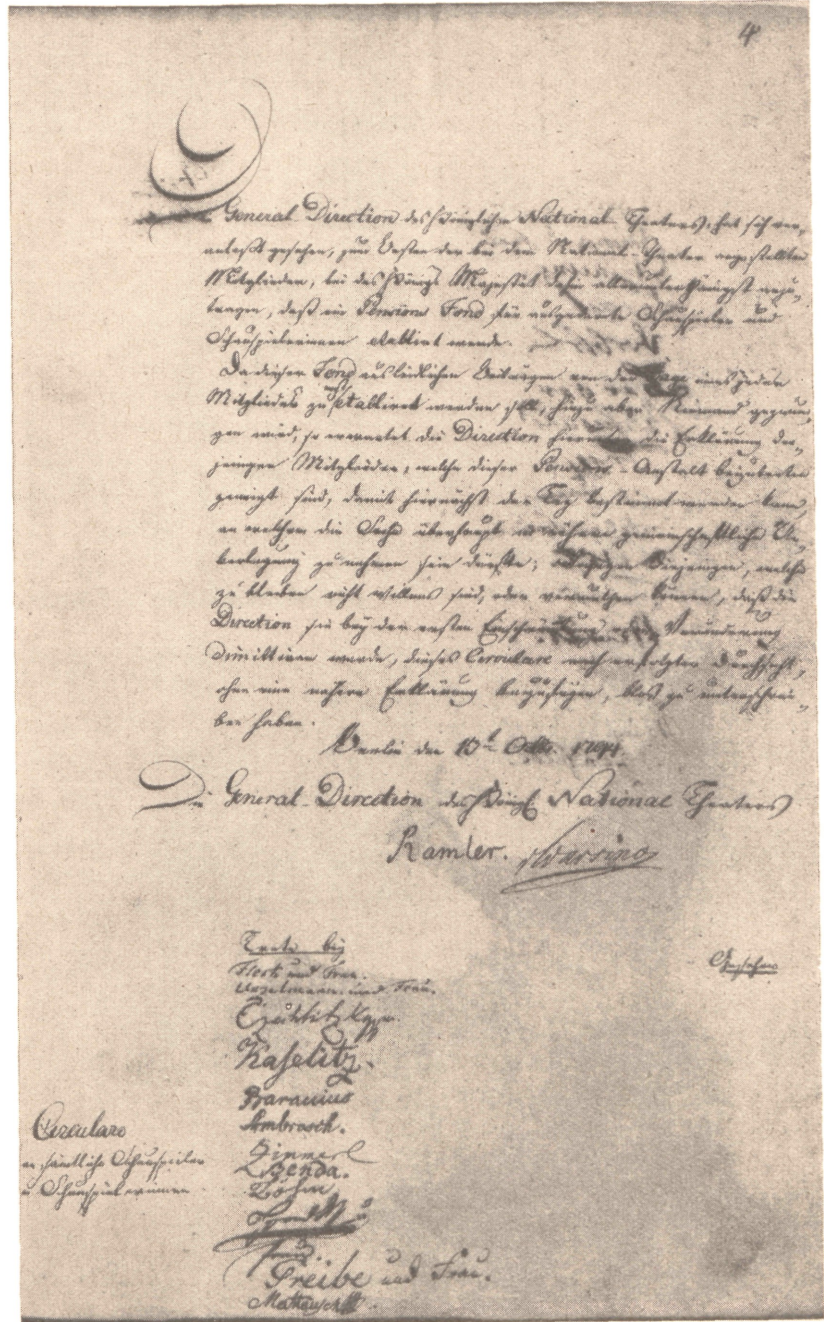 4
General Direction des Königlichen National Theaters, hat sich ver-
anlaßt gesehen, zum Besten der bei dem National-Theater angestellten
Mitglieder, bei des Königs Majestät dahin allerunterthänigst anzu-
tragen, daß ein Pension Fond für ausgediente Schauspieler und
Schauspielerinnen etablirt werde.
Da dieser Fond aus leidlichen Beiträgen von der Gage eines jeden
Mitgliedes zu etabliret werden soll, hiezu aber Niemand gezwun-
gen wird, so erwartet die Direction hierunter die Erklärung der-
jenigen Mitglieder, welche dieser Pensions-Anstalt beizutreten
geneigt sind, damit hiernächst der Tag bestimmt werden kann,
an welchem die Sache überhaupt in nähere gemeinschaftliche Ue-
berlegung zu nehmen sein dürfte; diejenigen, welche
zu bleiben nicht willens sind, oder vermuthen können, daß die
Direction sie bey der ersten Veränderung
dimittiren werde, dieses Circulare nach erfolgter Durchsicht,
ohne eine nähere Erklärung beyzufügen, blos zu unterschrei-
ben haben.
Berlin den 13t Octbr. 1794
Die General-Direction des Königl. National Theaters
Ramler. Warsing
Trete bey
Gesehen
Fleck und Frau.
Unzelmann und Frau.
Czechtitzky
Kaselitz.
Baranius
Ambrosch.
Benda.
Böhm
Circulare
an sämtliche Schauspieler
u Schauspielerinnen
Greibe und Frau.
Mattausch